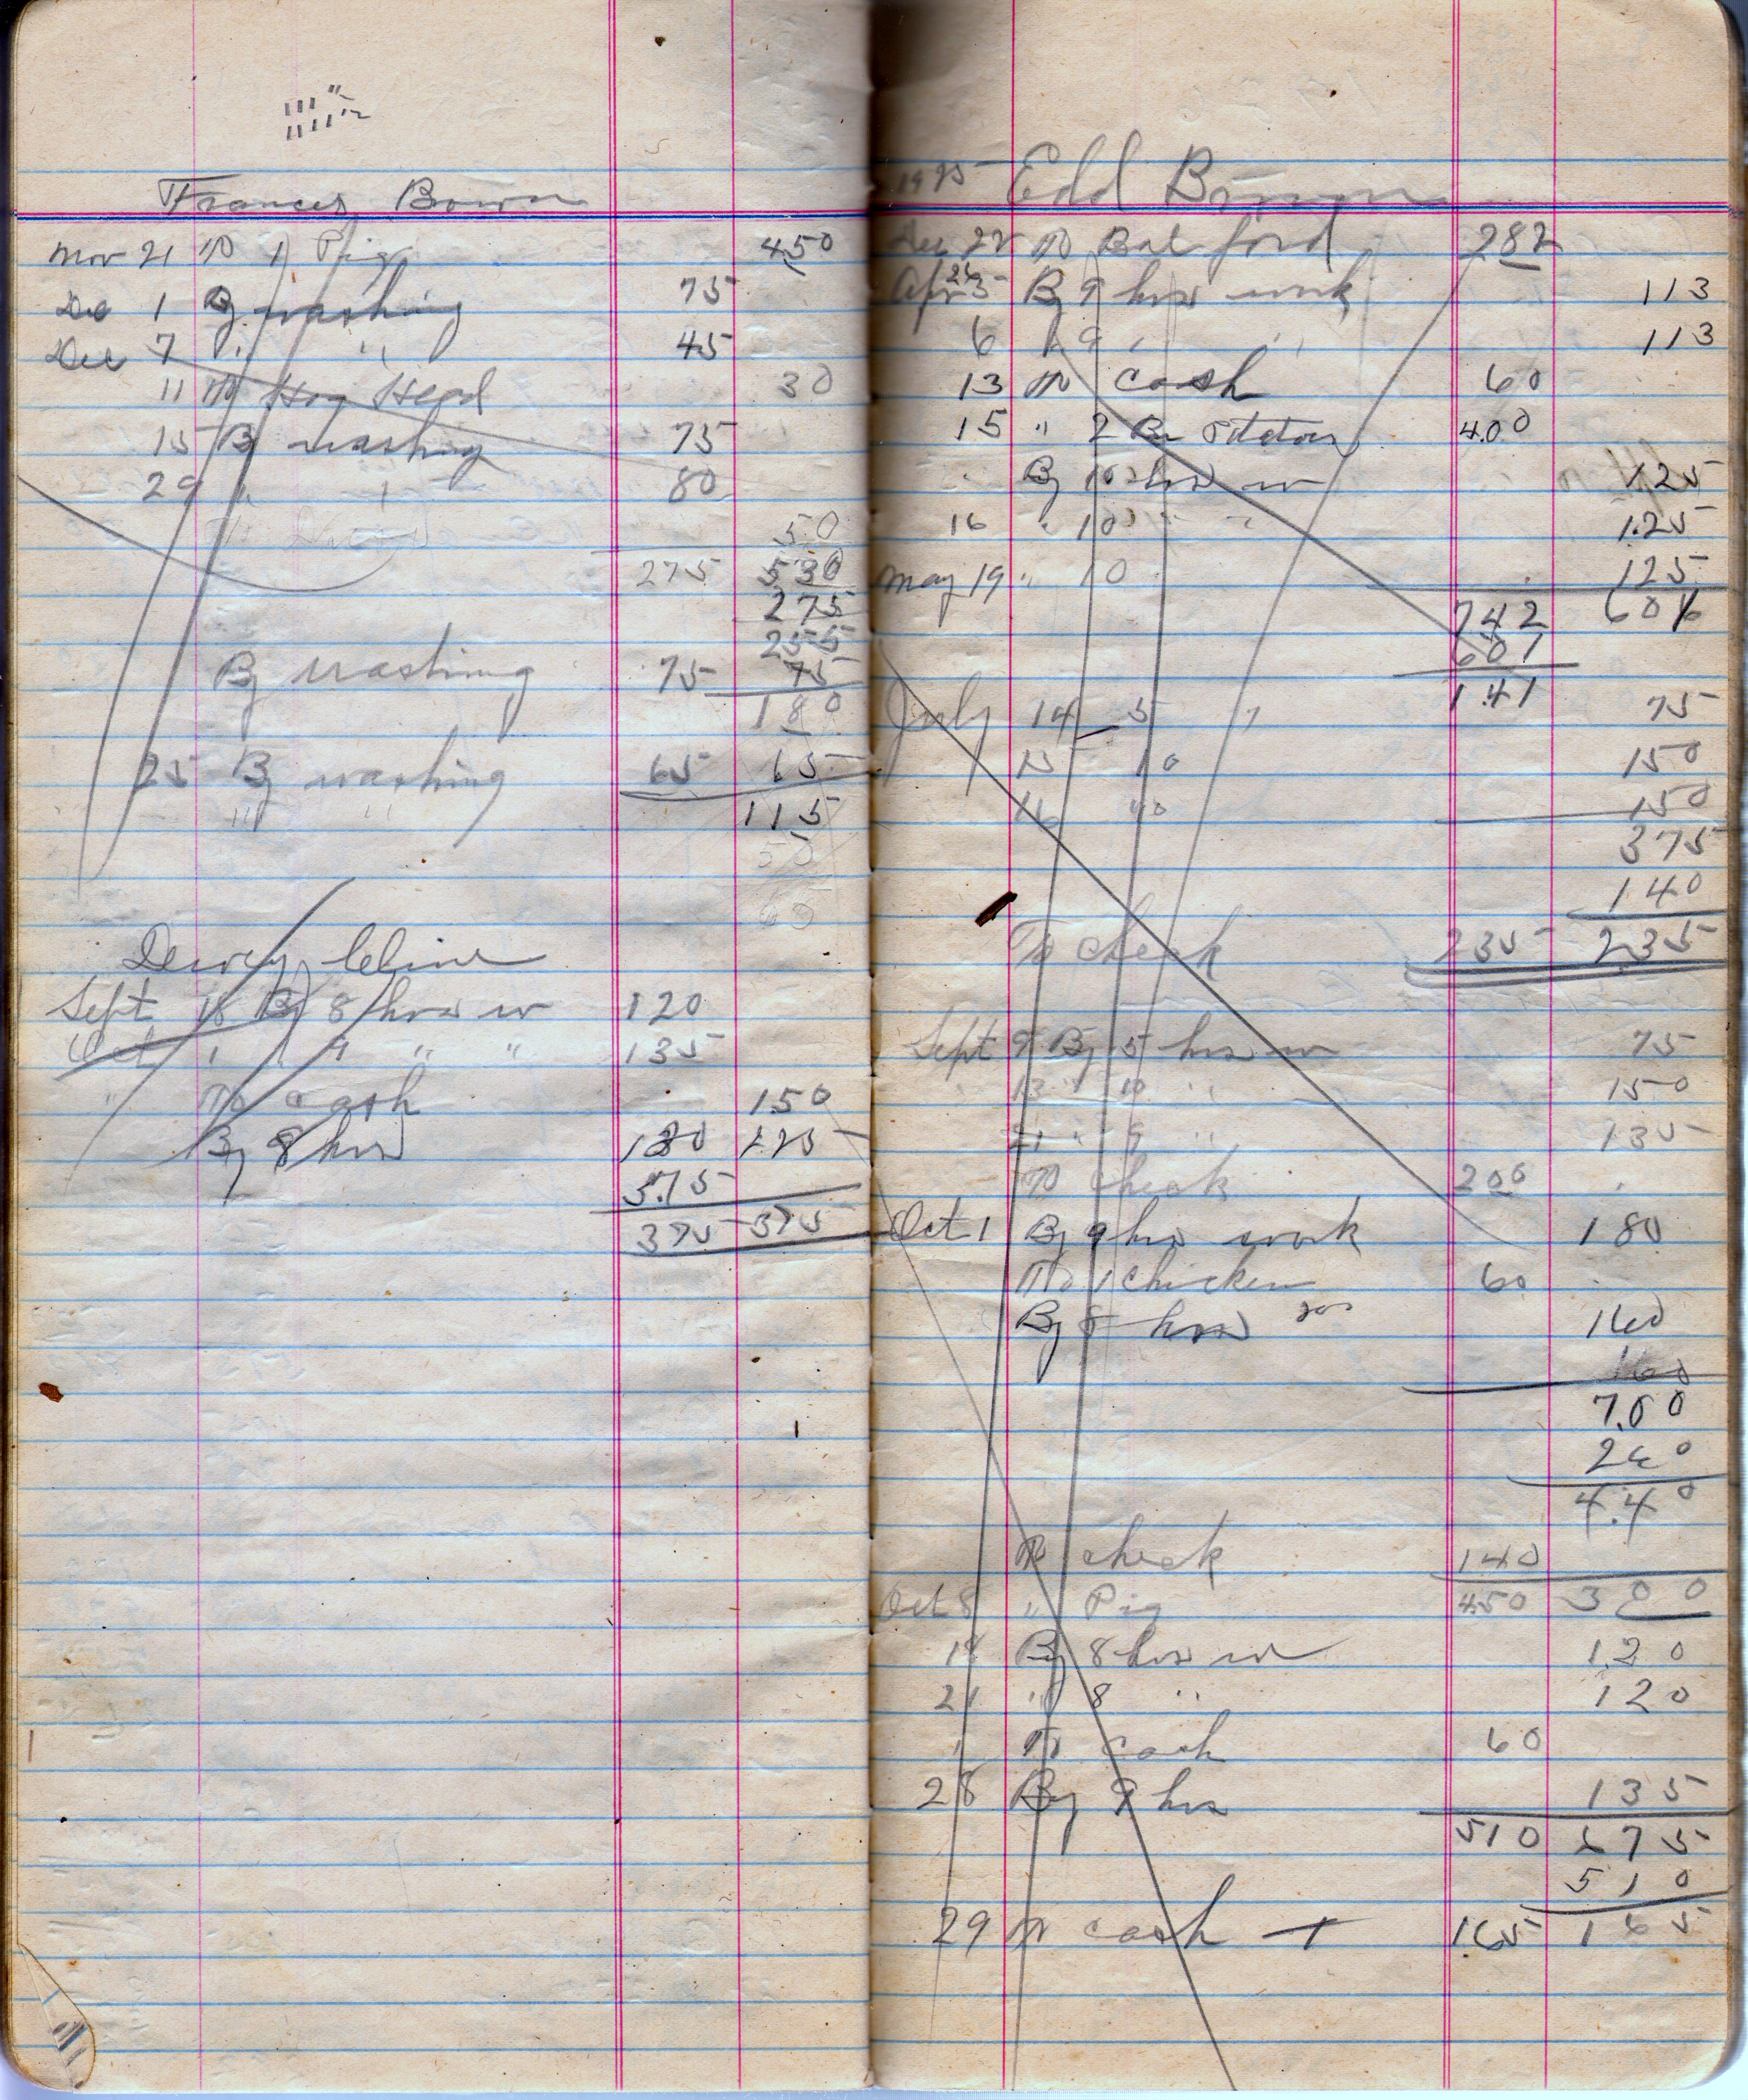 Frances Brown
Nov 21 To 1 Pig 450
Dec 1 By washing 75
Dec 7 " " 45
11 To Hog Head 30
15 By washing 75
29 " " 80
50
275 530
275
255
By washing 75 75
180
25 By washing 65 65
" " 115
50
60
Dewey Cline
Sept 18 By 8 hrs w 120
Oct 1 " 9 " " 135
" To cash 150
By 8 hrs 120 225
375
375 375
1925 Edd Brown
Dec 22 To Bal ford 282
Apr 5 By 9 hrs work 113
6 " 9 " " 113
13 To cash 60
15 " 2 Bu Potatoes 4.00
By 10 hrs w 125
16 " 10 " " 1.25
May 19 " 10 125
742 601
601
1.41
July 14 5 " 75
15 10 150
16 10 150
375
140
To check 235 235
Sept 9 By 5 hrs w 75
13 " 10 " 150
21 " 9 " 135
To check 200
Oct 1 By 9 hrs work 180
To 1 chicken 60
By 8 hrs 160
7.00
260
4.40
To check 140
Oct 8 " Pig 450 300
18 By 8 hrs w 120
21 " 8 " 120
" To cash 60
28 By 9 hrs 135
510 675
510
29 To cash 1.65 165